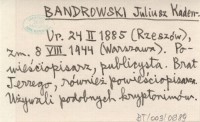 BANDROWSKI Juliusz Kaden-
Ur. 24 II 1885 (Rzeszów),
zm. 8 VIII 1944 (Warszawa). Po-
wieściopisarz, publicysta. Brat
Jerzego, również powieściopisarza.
Używali podobnych kryptonimów.